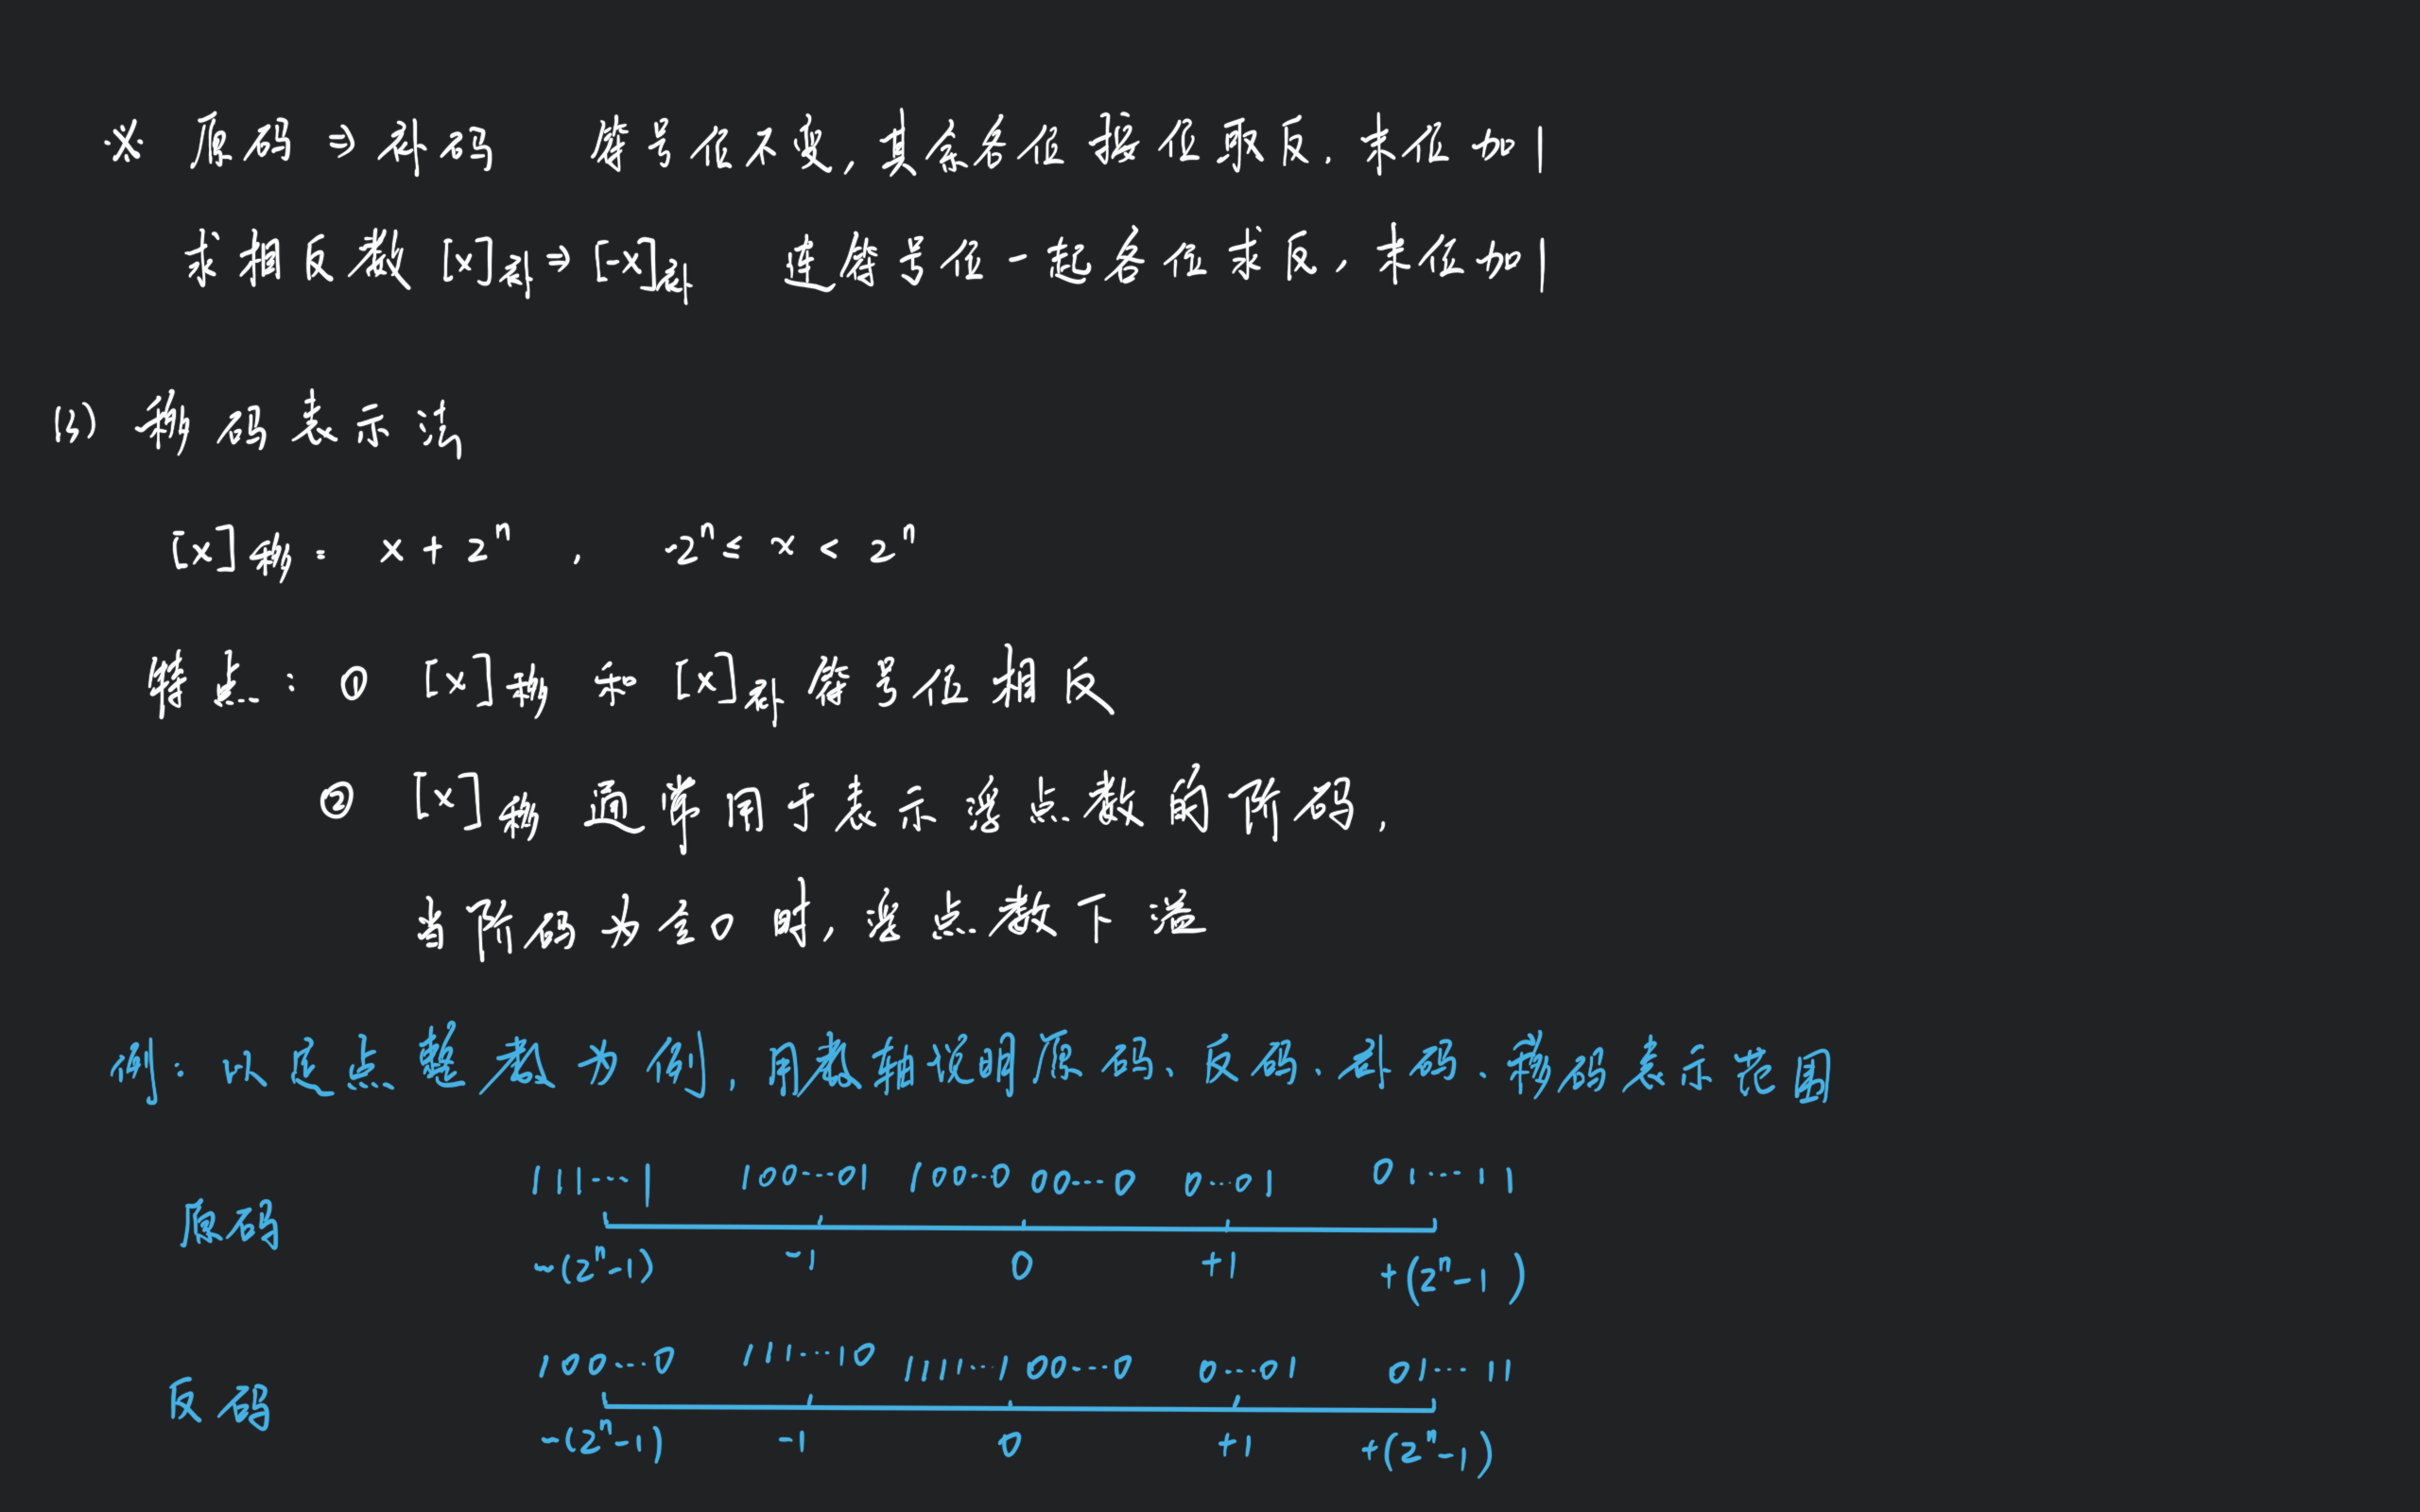 ※ 原码 ⇒ 补码 符号位不变,其余各位按位取反,末位加1
求相反数 [x]补 ⇒ [-x]补 连符号位一起各位求反,末位加1
(3) 移码表示法
[x]移 = x + 2ⁿ , -2ⁿ ≤ x < 2ⁿ
特点: ① [x]移 和 [x]补 符号位相反
② [x]移 通常用于表示浮点数的阶码,
当阶码为全0时,浮点数下溢
例: 以定点整数为例,用数轴说明原码、反码、补码、移码表示范围
111···1 100···01 100···0 00···0 0···01 01···11
原码
-(2ⁿ-1) -1 0 +1 +(2ⁿ-1)
100···0 111···10 1111···1 00···0 0···01 01···11
反码
-(2ⁿ-1) -1 0 +1 +(2ⁿ-1)